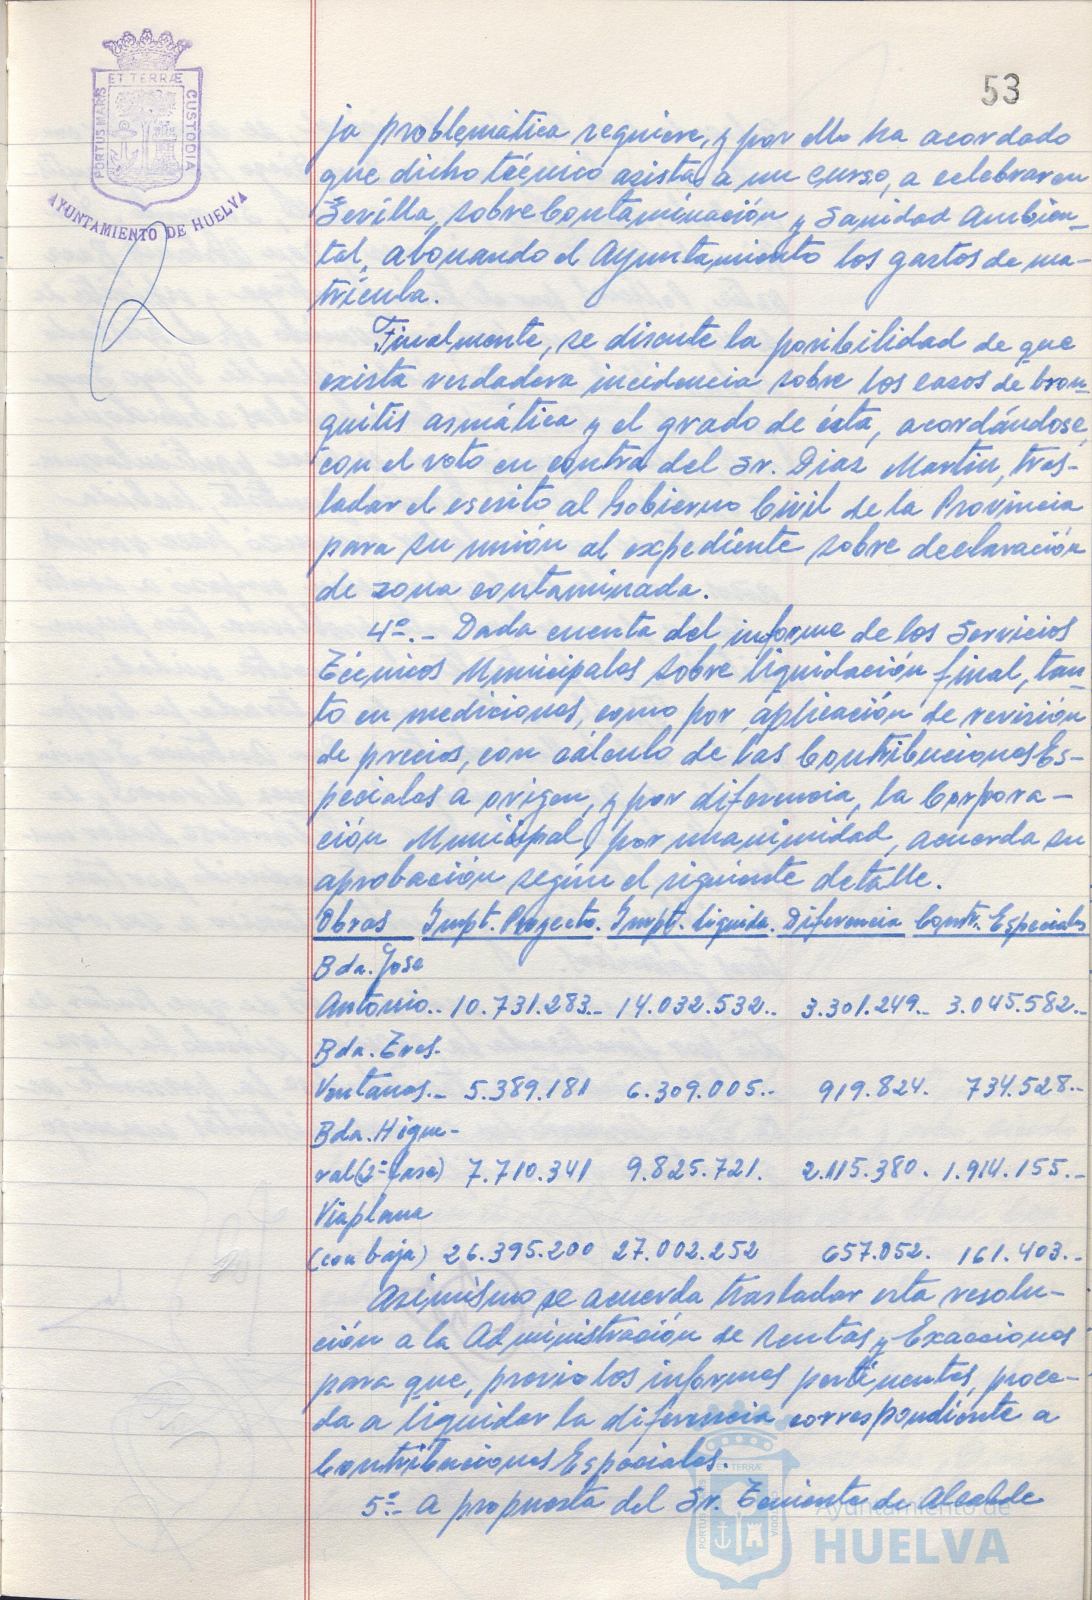 53
PORTUS MARIS ET TERRÆ CUSTODIA
AYUNTAMIENTO DE HUELVA
ja problemática requiere, y por ello ha acordado
que dicho técnico asista a un curso, a celebrar en
Sevilla, sobre Contaminación y Sanidad Ambien-
tal, abonando el Ayuntamiento los gastos de ma-
trícula.
Finalmente, se discute la posibilidad de que
exista verdadera incidencia sobre los casos de bron-
quitis asmática y el grado de ésta, acordándose
con el voto en contra del Sr. Diaz Martin, tras-
ladar el escrito al Gobierno Civil de la Provincia
para su unión al expediente sobre declaración
de zona contaminada.
4º.- Dada cuenta del informe de los Servicios
Técnicos Municipales sobre liquidación final, tan-
to en mediciones, como por aplicación de revisión
de precios, con cálculo de las Contribuciones Es-
peciales a origen, y por diferencia, la Corpora-
ción Municipal, por unanimidad, acuerda su
aprobación según el siguiente detalle.
Obras Impt. Proyecto. Impt. liquida. Diferencia Contr. Especiales
Bda. Jose
Antonio.. 10.731.283.- 14.032.532.. 3.301.249.. 3.045.582..
Bda. Tres-
Ventanas.- 5.389.181 6.309.005.. 919.824. 734.528..
Bda. Higue-
ral (2ª fase) 7.710.341 9.825.721. 2.115.380. 1.914.155..
Viaplana
(con baja) 26.395.200 27.002.252 657.052. 161.403..
Asimismo se acuerda trasladar esta resolu-
ción a la Administración de Rentas y Exacciones
para que, previo los informes pertinentes, proce-
da a liquidar la diferencia correspondiente a
Contribuciones Especiales.
5º- A propuesta del Sr. Teniente de Alcalde
PORTUS MARIS ET TERRÆ CUSTODIA
Ayuntamiento de
HUELVA